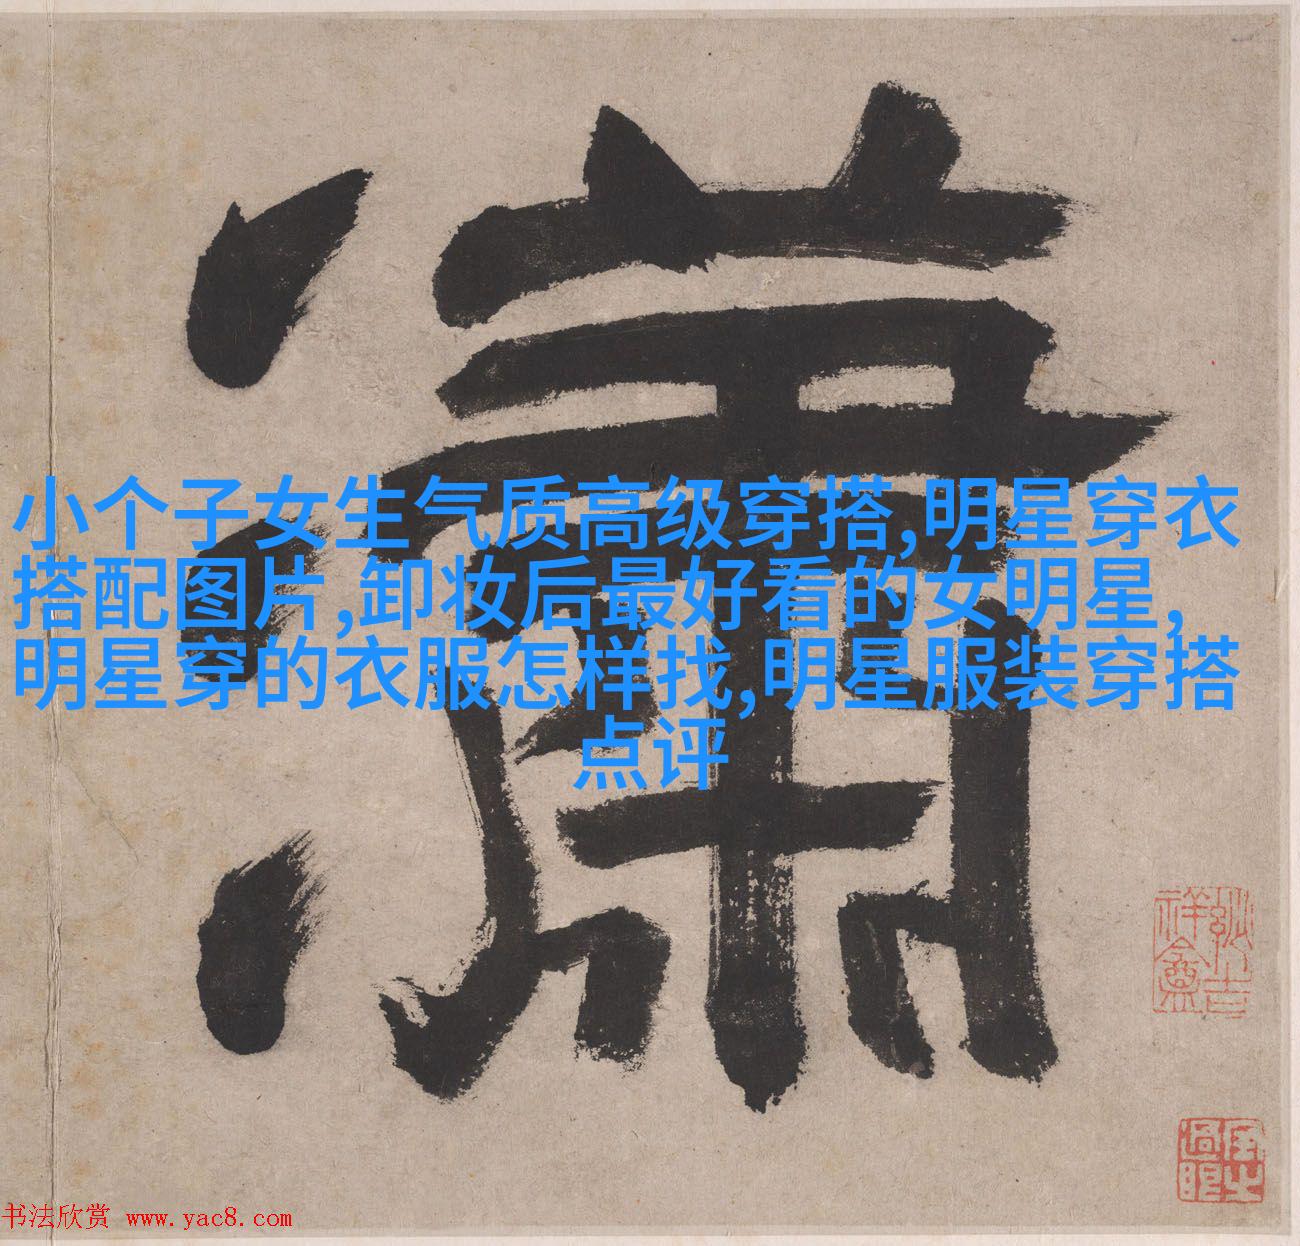 瀟
小个子女生气质高级穿搭,明星穿衣
搭配图片,卸妆后最好看的女明星,
明星穿的衣服怎样找,明星服装穿搭
点评
书法欣赏 www.yac8.com